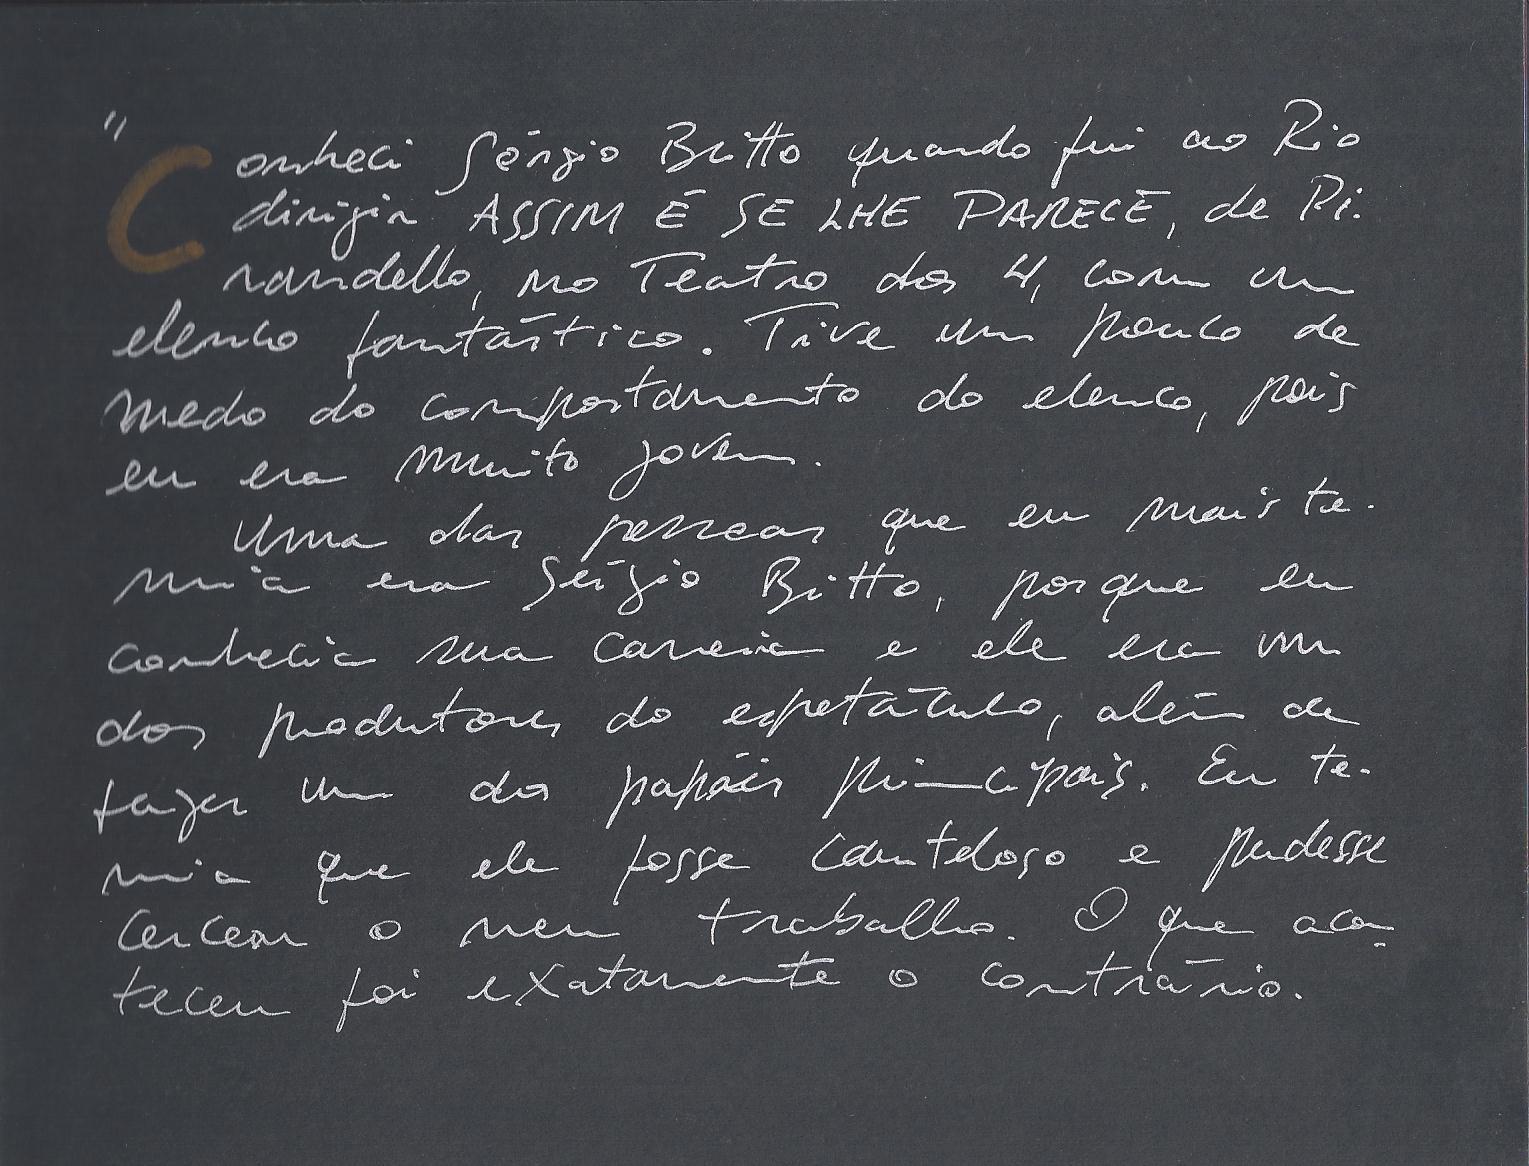 "Conheci Sérgio Britto quando fui ao Rio
dirigir ASSIM É SE LHE PARECE, de Pi-
randello, no Teatro dos 4, com um
elenco fantástico. Tive um pouco de
medo do comportamento do elenco, pois
eu era muito jovem.
Uma das pessoas que eu mais te-
mia era Sérgio Britto, porque eu
conhecia sua carreira e ele era um
dos produtores do espetáculo, além de
fazer um dos papéis principais. Eu te-
mia que ele fosse cauteloso e pudesse
cercear o meu trabalho. O que acon-
teceu foi exatamente o contrário.